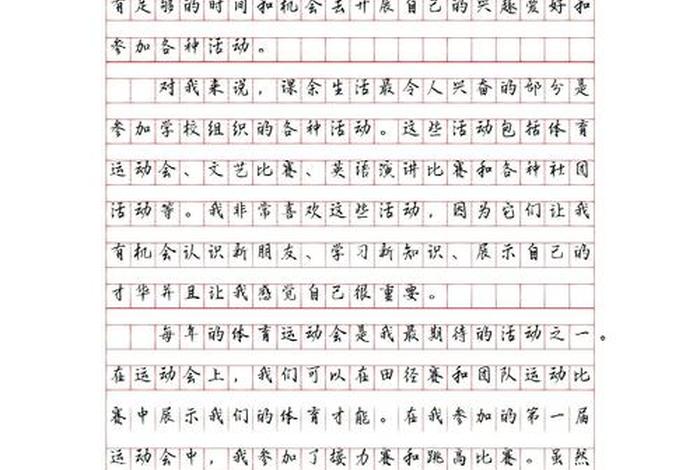 有足够的时间和机会去开展自己的兴趣爱好和
参加各种活动。
对我来说，课余生活最令人兴奋的部分是
参加学校组织的各种活动。这些活动包括体育
运动会、文艺比赛、英语演讲比赛和各种社团
活动等。我非常喜欢这些活动，因为它们让我
有机会认识新朋友、学习新知识、展示自己的
才华并且让我感觉自己很重要。
每年的体育运动会是我最期待的活动之一。
在运动会上，我们可以在田径赛和团队运动比
赛中展示我们的体育才能。在我参加的第一届
运动会中，我参加了接力赛和跳高比赛。虽然